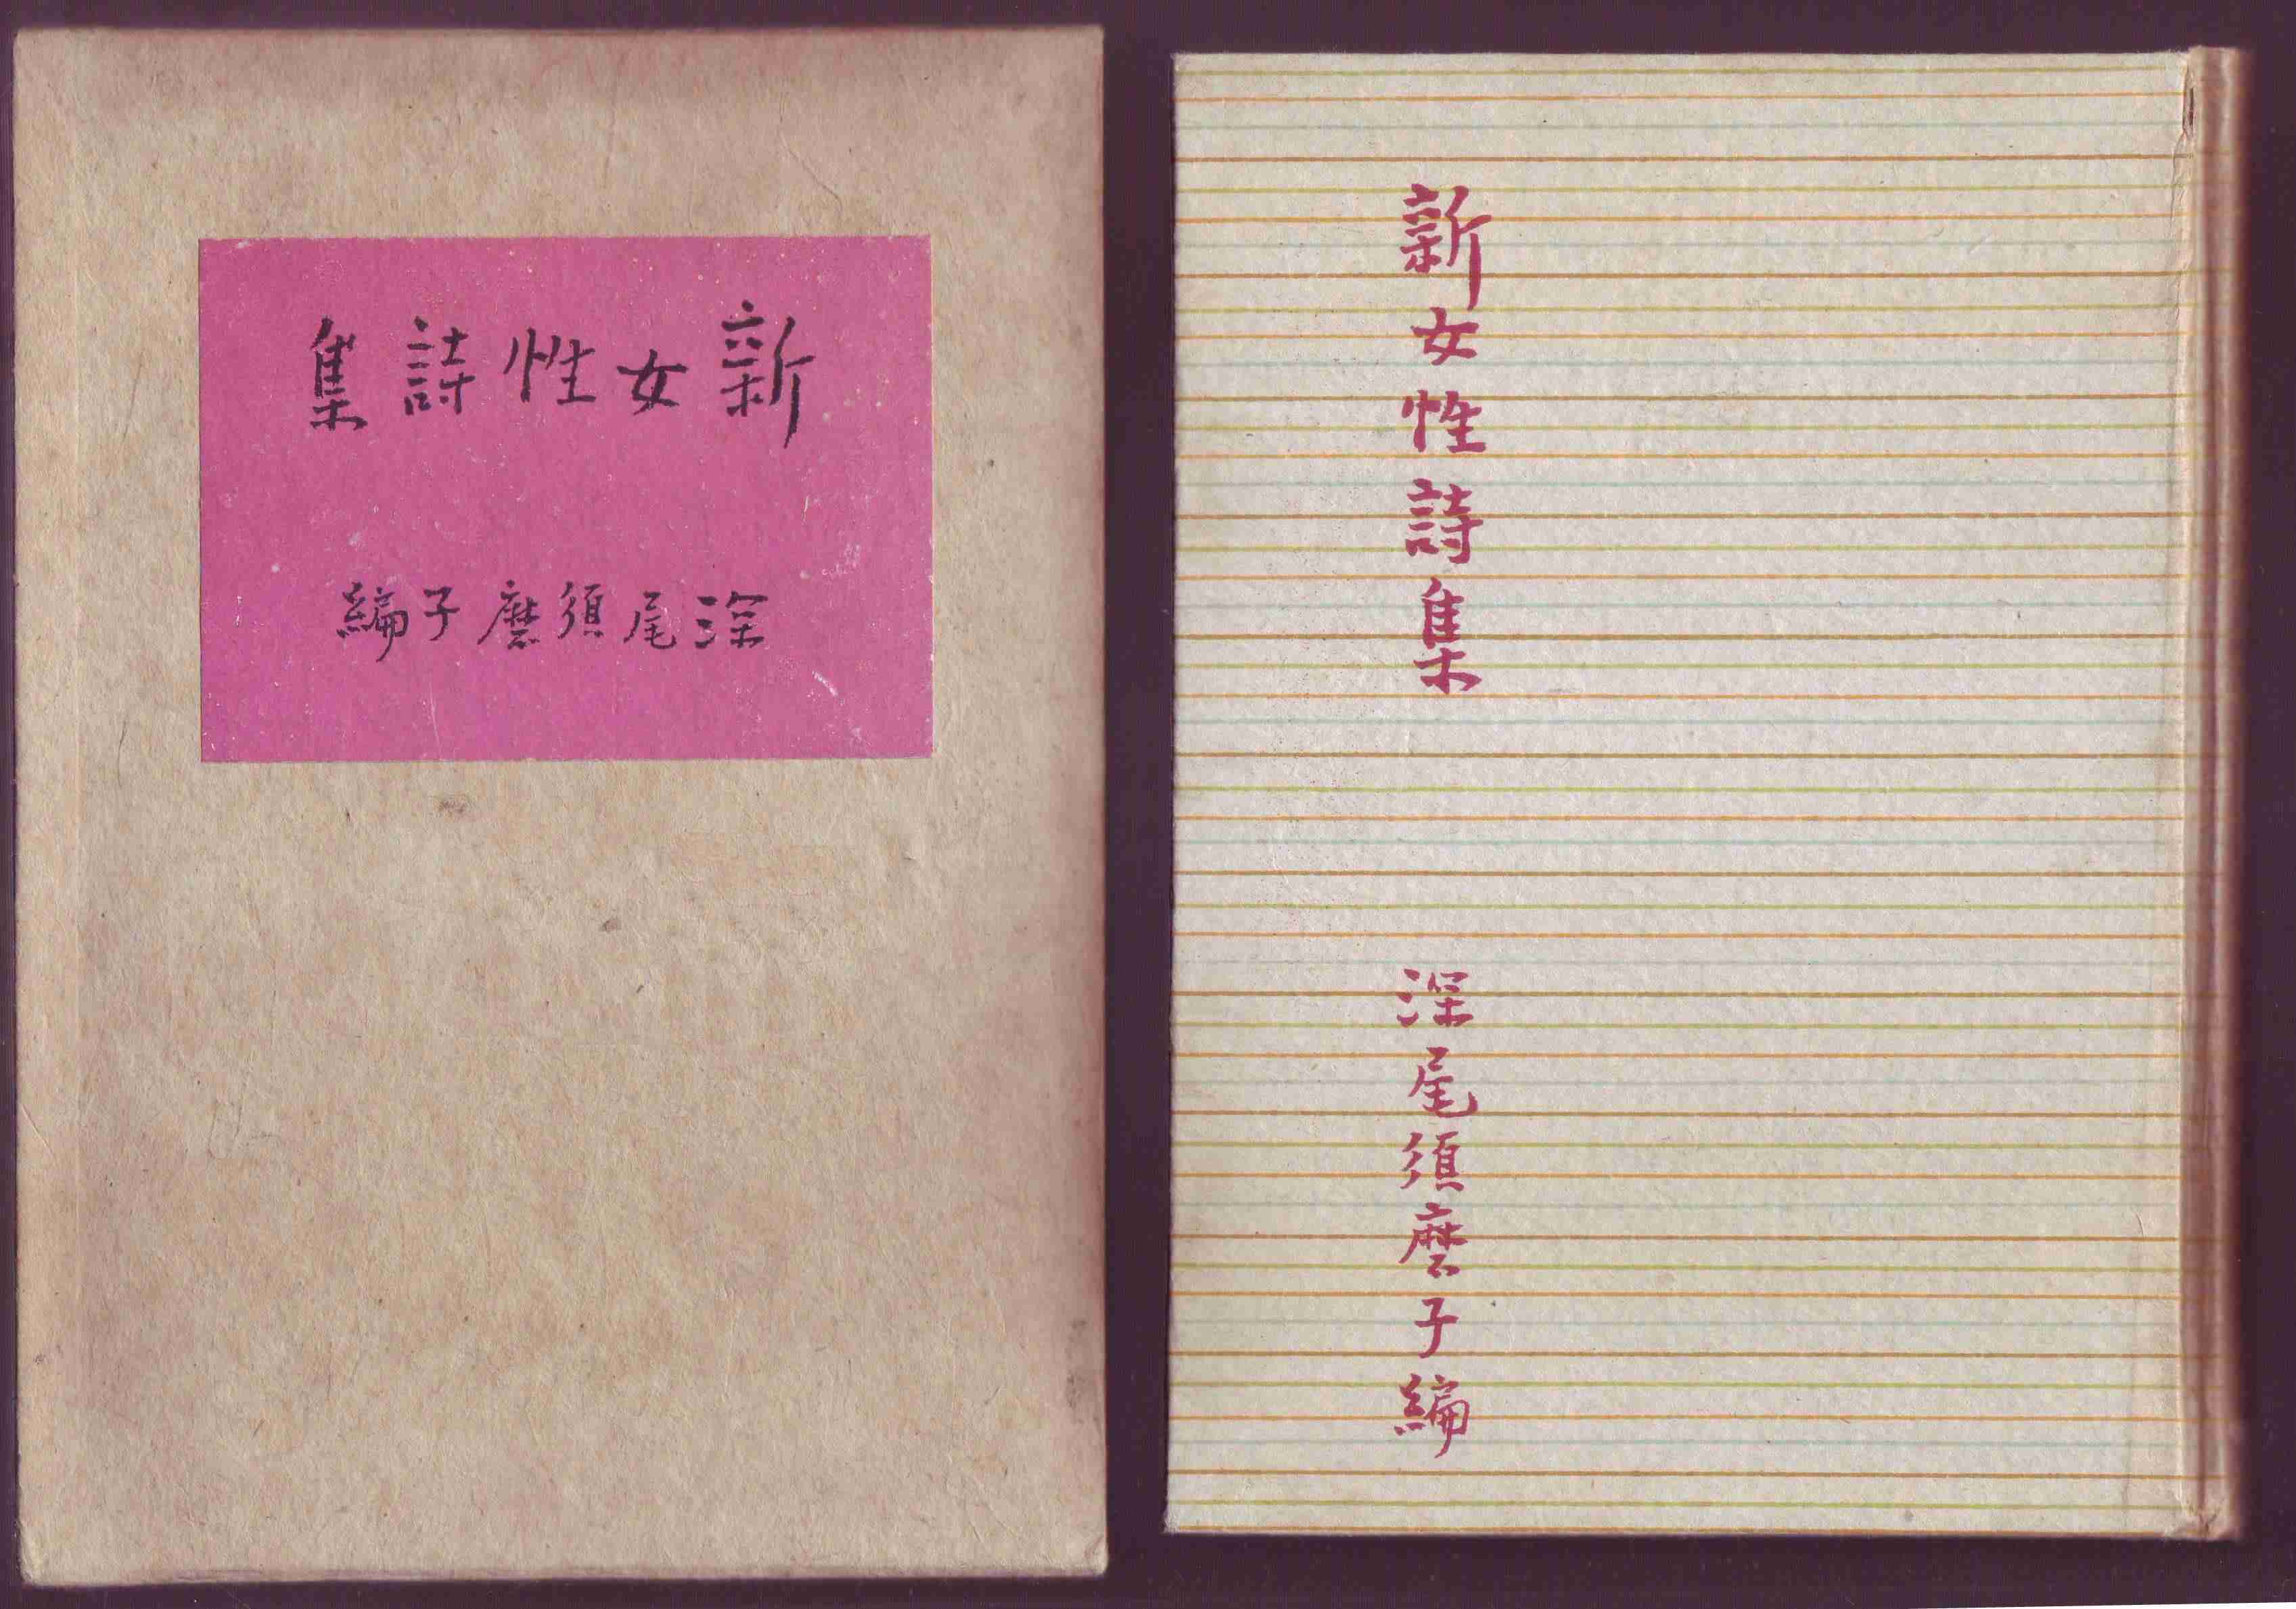 新女性詩集
深尾須磨子編
新女性詩集
深尾須磨子編